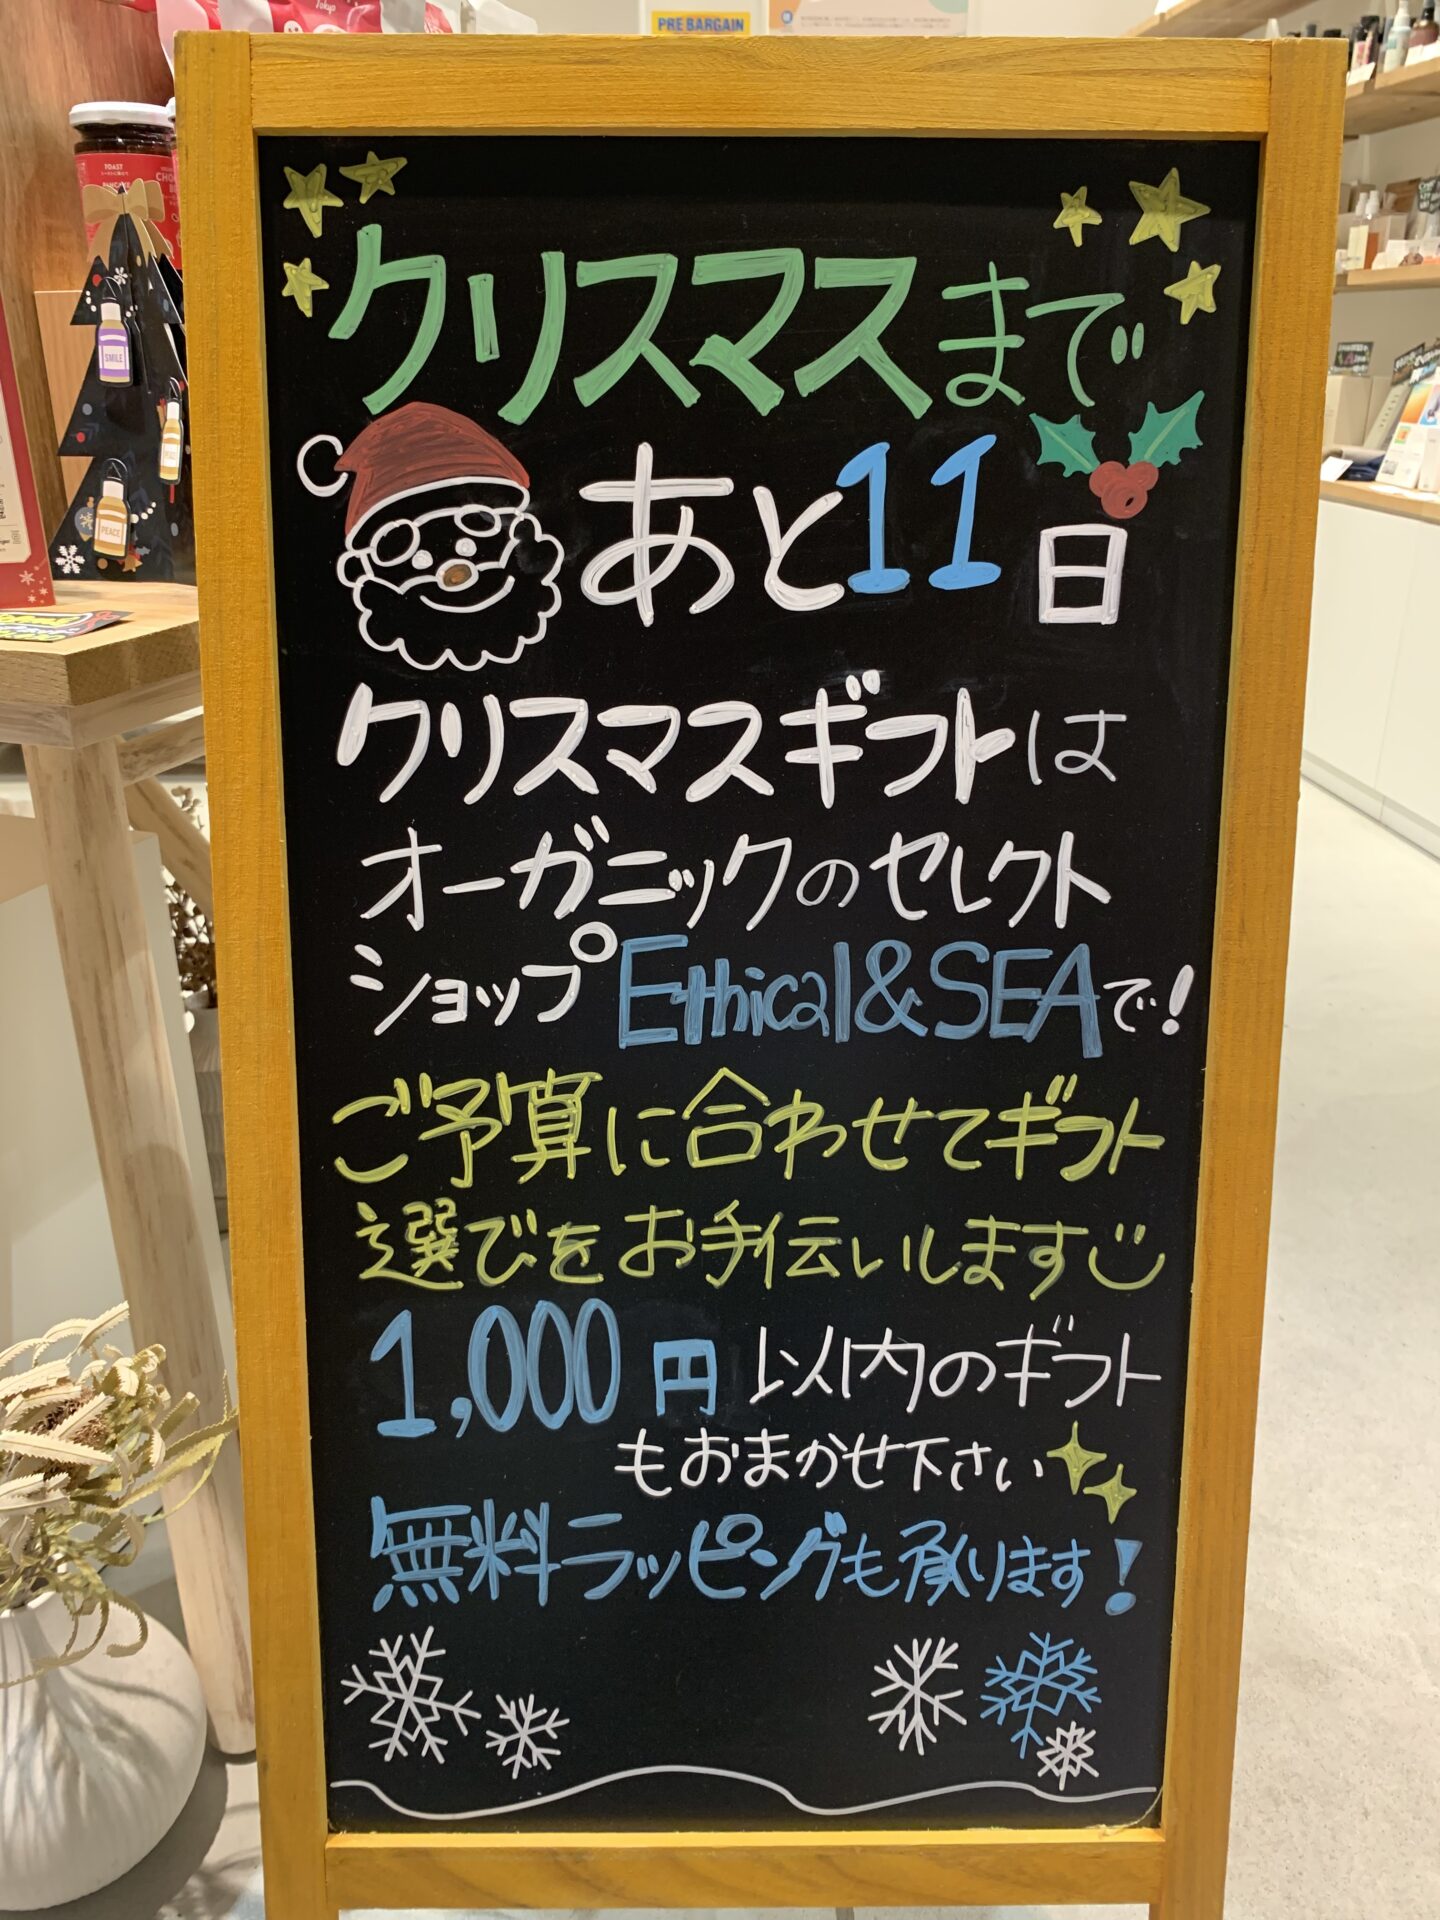 Tokyo
PRE BARGAIN
TOAST
SMILE
PEACE
クリスマスまで
あと11日
クリスマスギフトは
オーガニックのセレクト
ショップEthical&SEAで!
ご予算に合わせてギフト
選びをお手伝いします
1,000円以内のギフト
もおまかせ下さい
無料ラッピングも承ります!